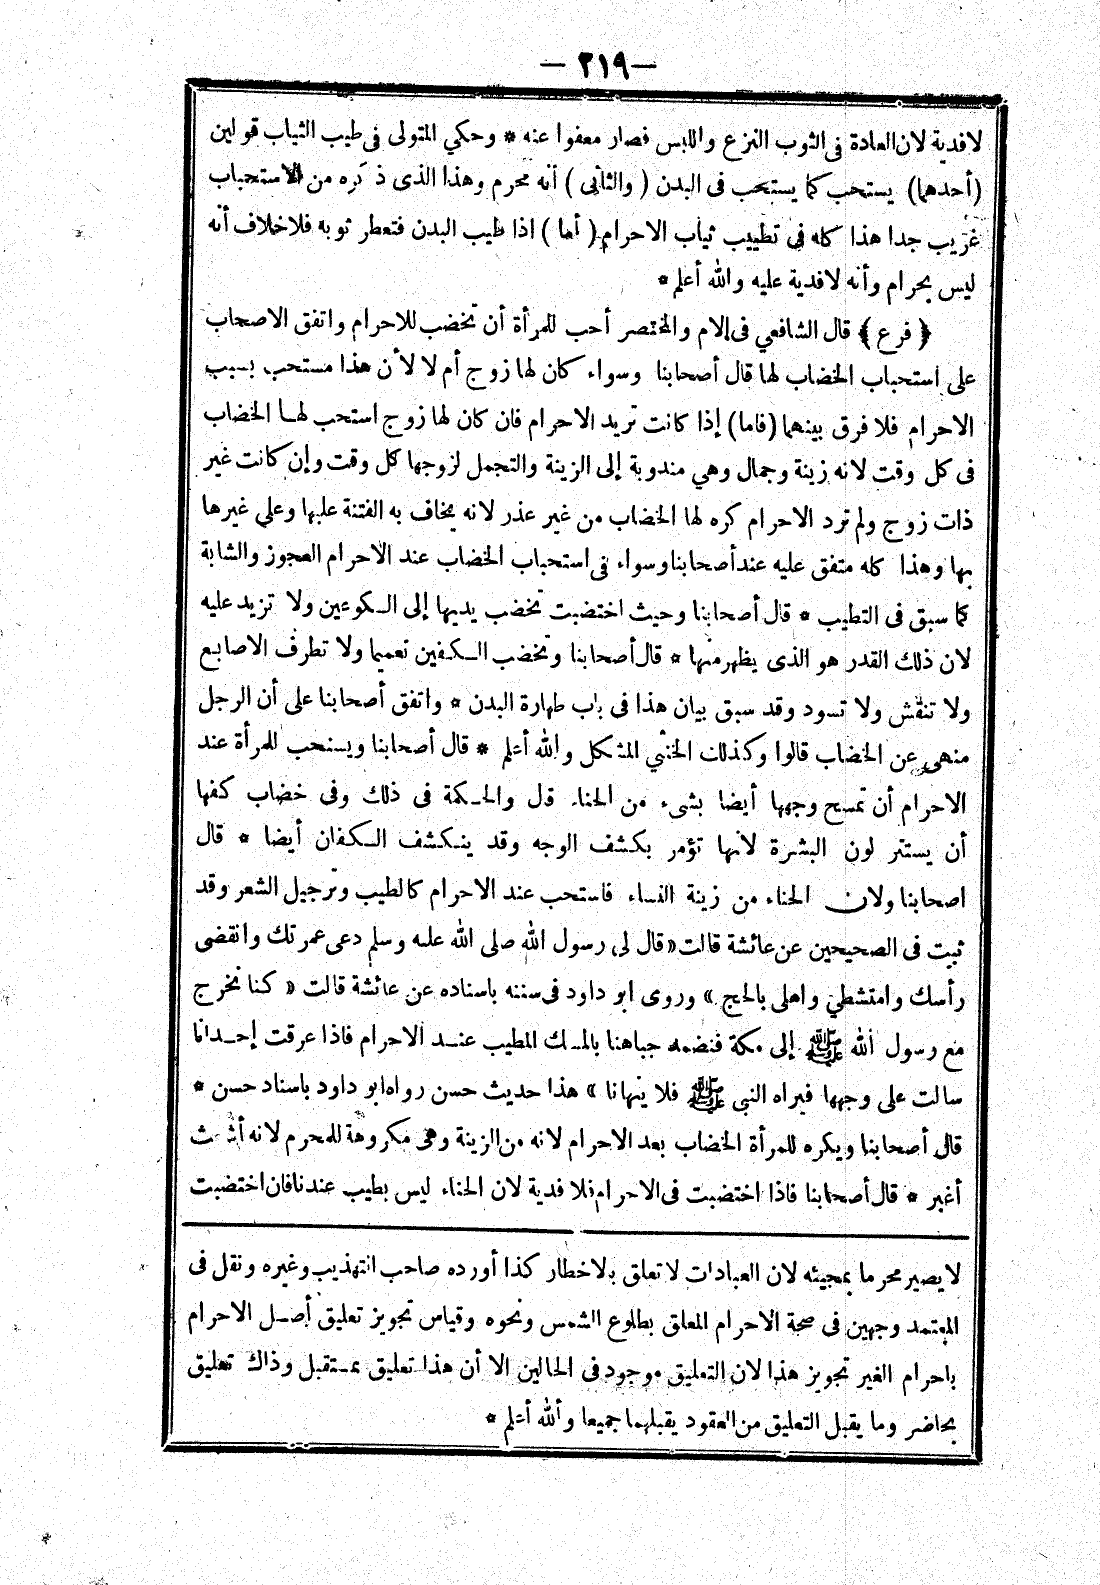 — ٢١٩ —
لا فدية لان العادة فى الثوب النزع واللبس فصار معفوا عنه * وحكي المتولى فى طيب الثياب قولين
(أحدهما) يستحب كما يستحب فى البدن (والثانى) أنه محرم وهذا الذى ذكره من الاستحباب
غريب جدا هذا كله فى تطييب ثياب الاحرام (أما) اذا طيب البدن فتعطر ثوبه فلا خلاف أنه
ليس بحرام وأنه لا فدية عليه والله أعلم *
﴿ فرع ﴾ قال الشافعي فى الام والمختصر أحب للمرأة أن تخضب للاحرام واتفق الاصحاب
على استحباب الخضاب لها قال أصحابنا وسواء كان لها زوج أم لا لأن هذا مستحب بسبب
الاحرام فلا فرق بينهما (فاما) إذا كانت تريد الاحرام فان كان لها زوج استحب لهـا الخضاب
فى كل وقت لانه زينة وجمال وهي مندوبة إلى الزينة والتجمل لزوجها كل وقت وإن كانت غير
ذات زوج ولم ترد الاحرام كره لها الخضاب من غير عذر لانه يخاف به الفتنة عليها وعلي غيرها
بها وهذا كله متفق عليه عند أصحابنا وسواء فى استحباب الخضاب عند الاحرام العجوز والشابة
كما سبق فى التطيب * قال أصحابنا وحيث اختضبت تخضب يديها إلى الـكوعين ولا تزيد عليه
لان ذلك القدر هو الذى يظهر منها * قال أصحابنا وتخضب الـكفين تعميما ولا تطرف الاصابع
ولا تنقش ولا تسود وقد سبق بيان هذا فى باب طهارة البدن * واتفق أصحابنا على أن الرجل
منهى عن الخضاب قالوا وكذلك الخنثي المشكل والله أعلم * قال أصحابنا ويستحب للمرأة عند
الاحرام أن تمسح وجهها أيضا بشىء من الحناء قال والحـكمة فى ذلك وفى خضاب كفها
أن يستتر لون البشرة لانها تؤمر بكشف الوجه وقد ينـكشف الـكفان أيضا * قال
اصحابنا ولان الحناء من زينة النساء فاستحب عند الاحرام كالطيب وترجيل الشعر وقد
ثبت فى الصحيحين عن عائشة قالت «قال لى رسول الله صلى الله عليه وسلم دعى عمرتك وانقضى
رأسك وامتشطي واهلى بالحج » وروى ابو داود فى سننه باسناده عن عائشة قالت « كنا نخرج
مع رسول الله ﷺ إلى مكة فنضمد جباهنا بالمسك المطيب عنـد الاحرام فاذا عرقت إحـدانا
سالت على وجهها فيراه النبى ﷺ فلا ينهانا » هذا حديث حسن رواه ابو داود باسناد حسن *
قال أصحابنا ويكره للمرأة الخضاب بعد الاحرام لانه من الزينة وهى مكروهة للمحرم لانه أشعث
أغبر * قال أصحابنا فاذا اختضبت فى الاحرام فلا فدية لان الحناء ليس بطيب عندنا فان اختضبت
لا يصير محرما بمجيئه لان العبادات لا تعلق بالاخطار كذا أورده صاحب التهذيب وغيره ونقل فى
المعتمد وجهين فى صحة الاحرام المعلق بطلوع الشمس ونحوه وقياس تجويز تعليق أصـل الاحرام
باحرام الغير تجويز هذا لان التعليق موجود فى الحالين الا أن هذا تعليق بمستقبل وذاك تعليق
بحاضر وما يقبل التعليق من العقود يقبلهما جميعا والله أعلم *